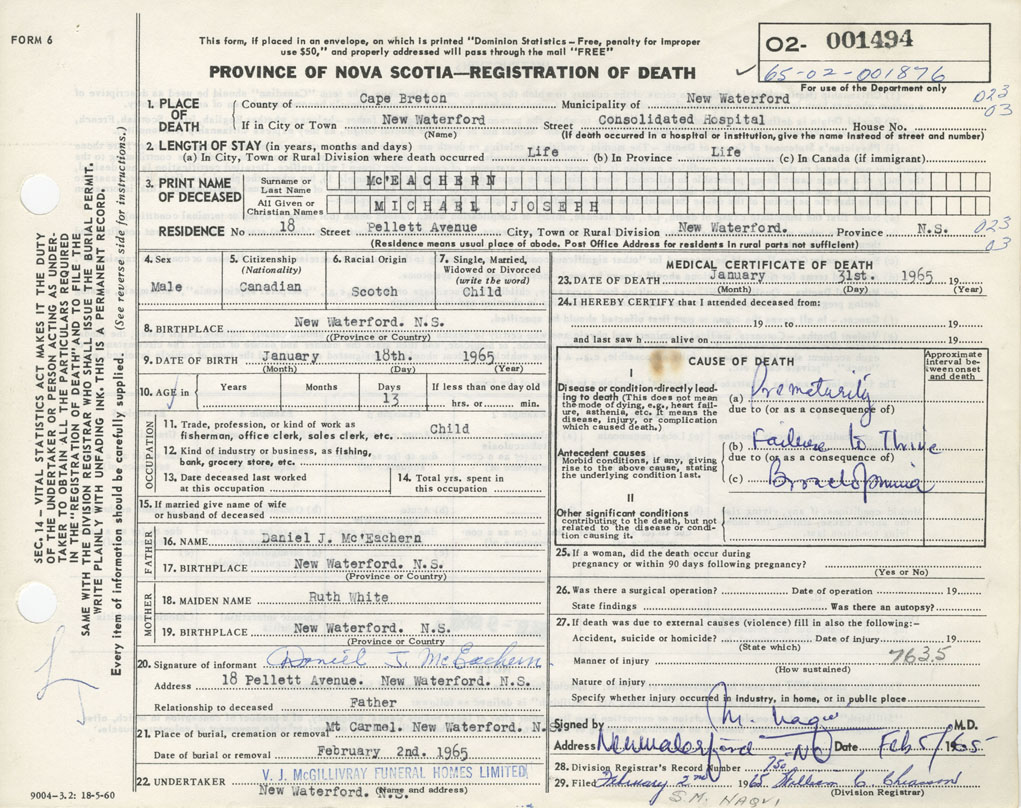 FORM 6
This form, if placed in an envelope, on which is printed "Dominion Statistics – Free, penalty for improper
use $50," and properly addressed will pass through the mail "FREE"
PROVINCE OF NOVA SCOTIA—REGISTRATION OF DEATH
02- 001494
65-02-001876
For use of the Department only
023
03
1. PLACE OF DEATH
County of Cape Breton Municipality of New Waterford
If in City or Town New Waterford Street Consolidated Hospital House No.
(Name) (If death occurred in a hospital or institution, give the name instead of street and number)
2. LENGTH OF STAY (in years, months and days)
(a) In City, Town or Rural Division where death occurred Life (b) In Province Life (c) In Canada (if immigrant)
3. PRINT NAME OF DECEASED
Surname or Last Name Mc'EACHERN
All Given or Christian Names MICHAEL JOSEPH
RESIDENCE No 18 Street Pellett Avenue City, Town or Rural Division New Waterford. Province N.S.
(Residence means usual place of abode. Post Office Address for residents in rural parts not sufficient)
023
03
4. Sex
Male
5. Citizenship
(Nationality)
Canadian
6. Racial Origin
Scotch
7. Single, Married,
Widowed or Divorced
(write the word)
Child
8. BIRTHPLACE New Waterford. N.S.
(Province or Country)
9. DATE OF BIRTH January 18th. 1965
(Month) (Day) (Year)
10. AGE in
Years Months Days If less than one day old
13 hrs. or min.
OCCUPATION
11. Trade, profession, or kind of work as
fisherman, office clerk, sales clerk, etc. Child
12. Kind of industry or business, as fishing,
bank, grocery store, etc.
13. Date deceased last worked
at this occupation
14. Total yrs. spent in
this occupation
15. If married give name of wife
or husband of deceased
FATHER
16. NAME Daniel J. Mc'Eachern
17. BIRTHPLACE New Waterford. N.S.
(Province or Country)
MOTHER
18. MAIDEN NAME Ruth White
19. BIRTHPLACE New Waterford. N.S.
(Province or Country
20. Signature of informant Daniel J. McEachern
Address 18 Pellett Avenue. New Waterford. N.S.
Relationship to deceased Father
21. Place of burial, cremation or removal Mt Carmel. New Waterford. N.S.
Date of burial or removal February 2nd. 1965
22. UNDERTAKER V. J. McGILLIVRAY FUNERAL HOMES LIMITED
New Waterford. N.S.
(Name and address)
9004-3.2: 18-5-60
MEDICAL CERTIFICATE OF DEATH
23. DATE OF DEATH January 31st. 1965
(Month) (Day) (Year)
24. I HEREBY CERTIFY that I attended deceased from:
19 to 19
and last saw h alive on 19
CAUSE OF DEATH
Approximate
interval be-
tween onset
and death
I
Disease or condition directly lead-
ing to death (This does not mean
the mode of dying, e.g., heart fail-
ure, asthenia, etc. It means the
disease, injury, or complication
which caused death.)
(a) Prematurity
due to (or as a consequence of)
(b) Failure to Thrive
due to (or as a consequence of)
(c)
Antecedent causes
Morbid conditions, if any, giving
rise to the above cause, stating
the underlying condition last.
II
Other significant conditions
contributing to the death, but not
related to the disease or condi-
tion causing it.
25. If a woman, did the death occur during
pregnancy or within 90 days following pregnancy?
(Yes or No)
26. Was there a surgical operation? Date of operation 19
State findings Was there an autopsy?
27. If death was due to external causes (violence) fill in also the following:–
Accident, suicide or homicide? Date of injury 19
(State which)
Manner of injury 763.5
(How sustained)
Nature of injury
Specify whether injury occurred in industry, in home, or in public place
Signed by M. Naqvi M.D.
Address Newwaterford NS Date Feb 5/1965
28. Division Registrar's Record Number 750
29. Filed February 2nd 1965 William C.
(Division Registrar)
S.M. NAQVI
SEC. 14 – VITAL STATISTICS ACT MAKES IT THE DUTY
OF THE UNDERTAKER OR PERSON ACTING AS UNDER-
TAKER TO OBTAIN ALL THE PARTICULARS REQUIRED
IN THE "REGISTRATION OF DEATH" AND TO FILE THE
SAME WITH THE DIVISION REGISTRAR WHO SHALL ISSUE THE BURIAL PERMIT.
WRITE PLAINLY WITH UNFADING INK. THIS IS A PERMANENT RECORD.
Every item of information should be carefully supplied. (See reverse side for instructions.)